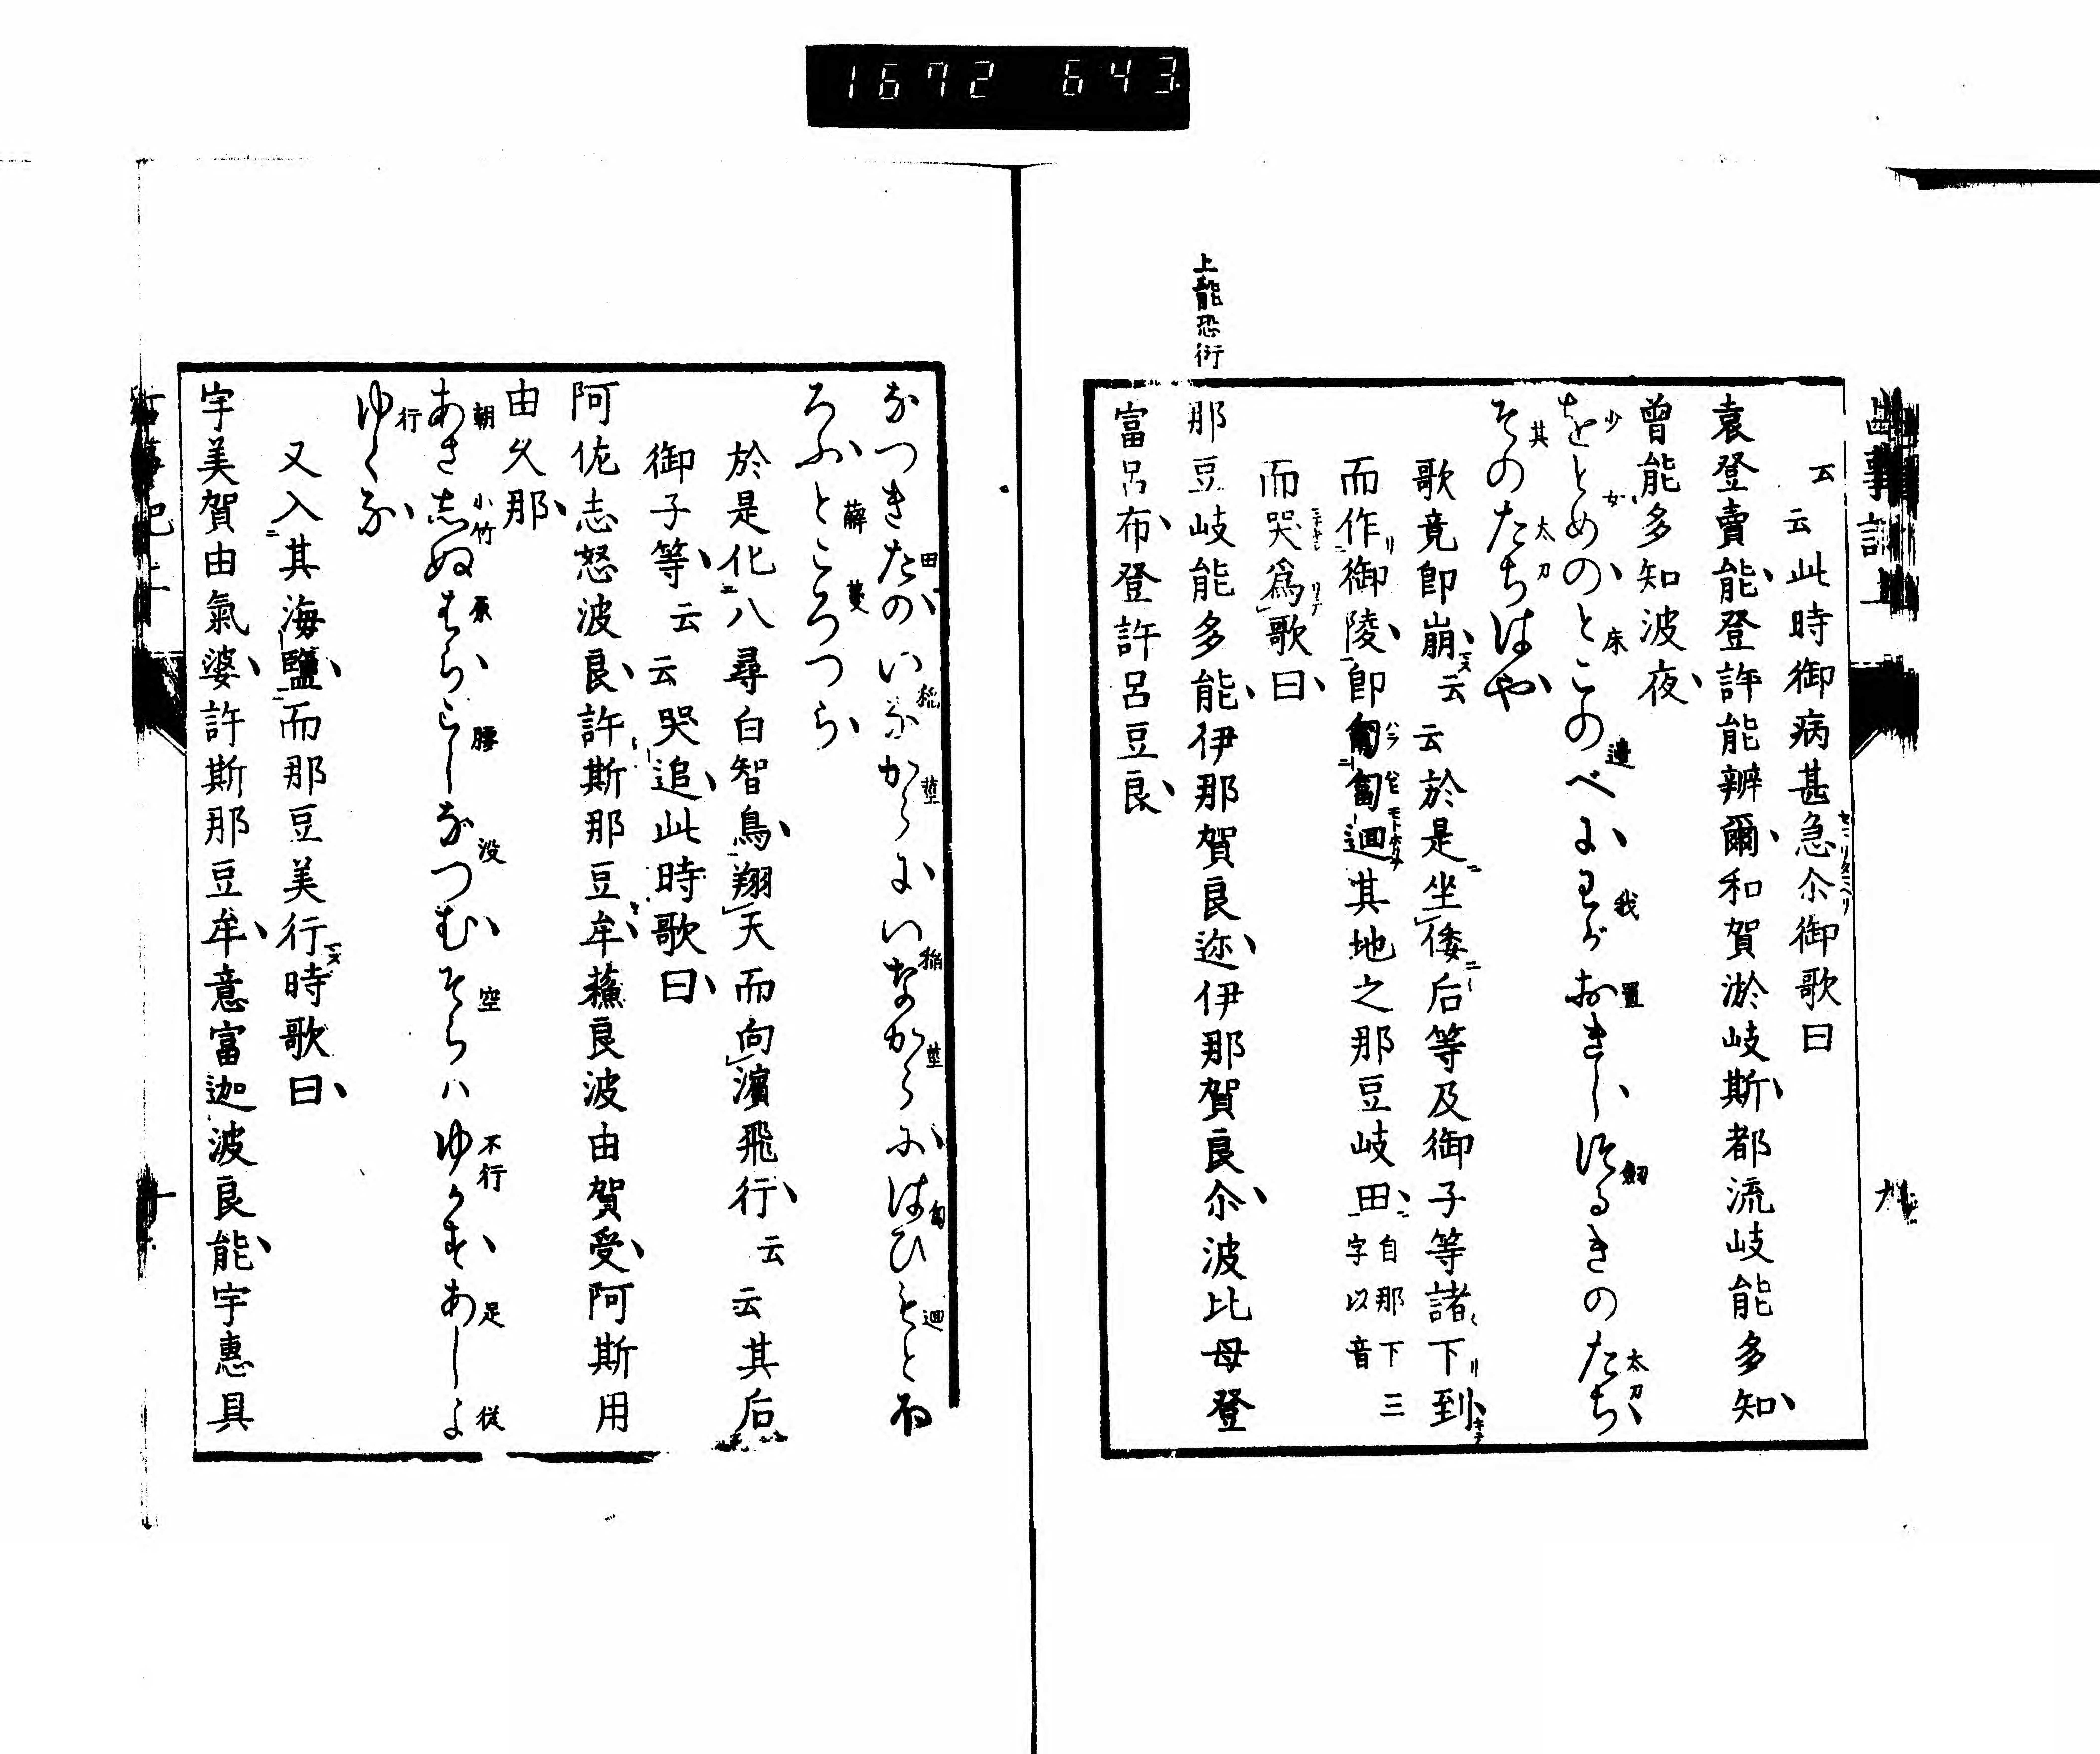 1672 643
古事記上 九
云云此時御病甚急尒御歌曰
袁登賣能、登許能辨爾、和賀淤岐斯、都流岐能多知、
曾能多知波夜、
をとめのとこのべにわがおきしつるきのたち
そのたちはや
歌竟即崩、云云於是坐倭后等及御子等諸下到
而作御陵、即匍匐廻其地之那豆岐田、自那下三字以音
而哭爲歌曰、
上能恐衍
那豆岐能多能、伊那賀良迩、伊那賀良尒、波比母登
富呂布、登許呂豆良、
なつきたのいながらにいなからにはひもとほ
ろふところつら
於是化八尋白智鳥、翔天而向濱飛行、云云其后
御子等、云云哭追、此時歌曰、
阿佐志怒波良、許斯那豆牟、蘓良波由賀受、阿斯用
由久那、
あさしぬはらこしなつむそらハゆかすあしよ
ゆくな
又入其海鹽、而那豆美行時歌曰、
宇美賀由氣婆、許斯那豆牟、意富迦波良能、宇惠具
古事記上 十